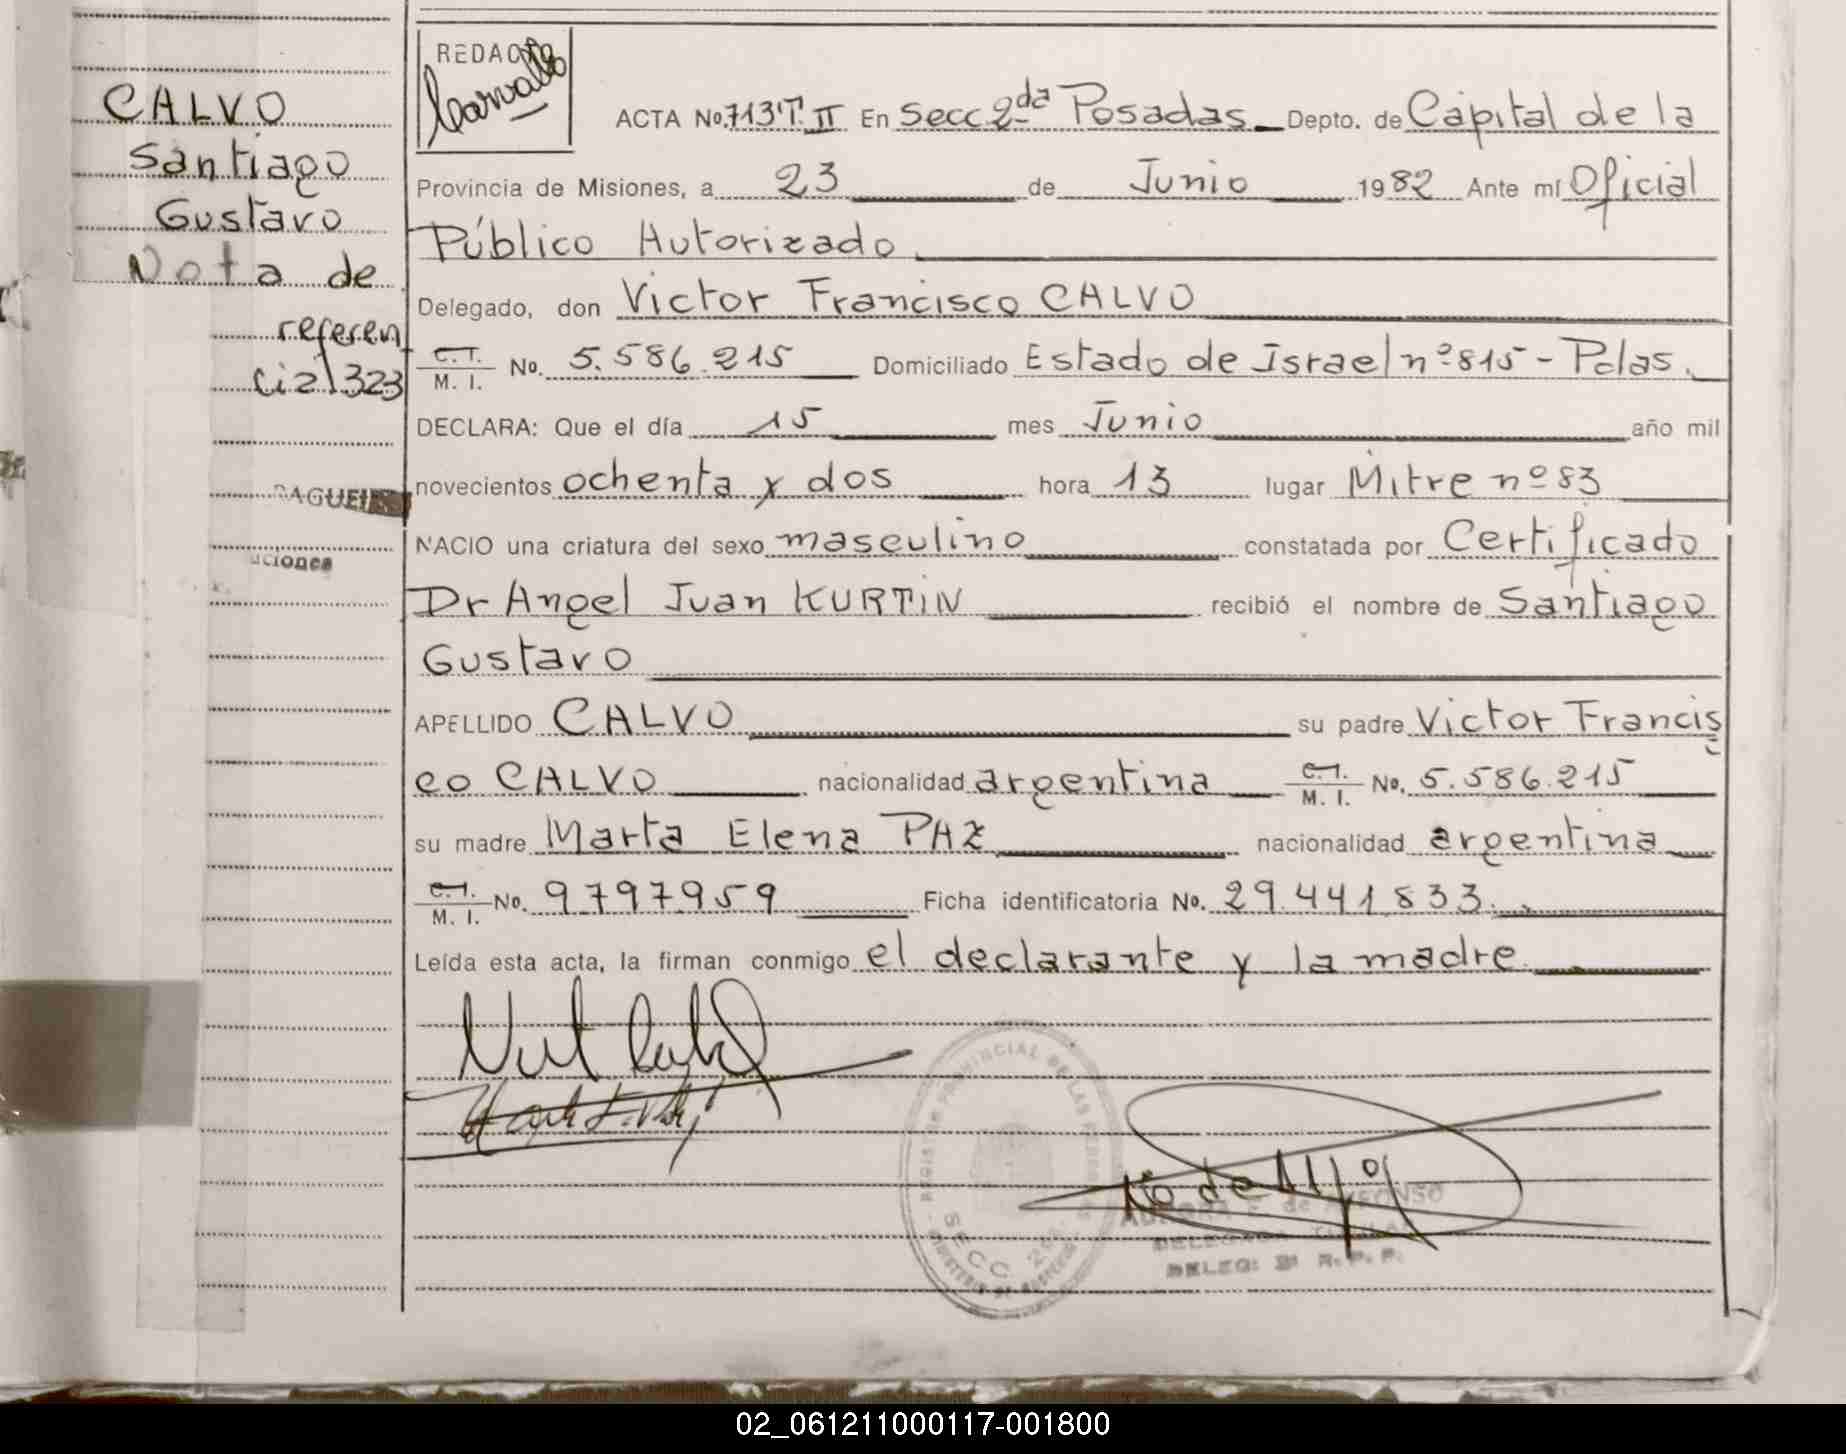 CALVO
Santiago
Gustavo
Nota de
referen
cia 1323
REDACTO
Carvallo
ACTA No. 713 T. II En Secc 2da Posadas Depto. de Capital de la
Provincia de Misiones, a 23 de Junio 1982 Ante mí Oficial
Público Autorizado
Delegado, don Victor Francisco CALVO
C.I. M. I. No. 5.586.215 Domiciliado Estado de Israel nº 815 - Pdas.
DECLARA: Que el día 15 mes Junio año mil
novecientos ochenta y dos hora 13 lugar Mitre nº 83
NACIO una criatura del sexo masculino constatada por Certificado
Dr Angel Juan KURTIN recibió el nombre de Santiago
Gustavo
APELLIDO CALVO su padre Victor Francis
co CALVO nacionalidad argentina C.I. M. I. No. 5.586.215
su madre Marta Elena PAZ nacionalidad argentina
C.I. M. I. No. 9797959 Ficha identificatoria No. 29.441.833.
Leída esta acta, la firman conmigo el declarante y la madre
REGISTRO PROVINCIAL DE LAS PERSONAS
SECC. 2da
DELEGADA TITULAR
DELEG: 2ª R. P. P.
02_061211000117-001800